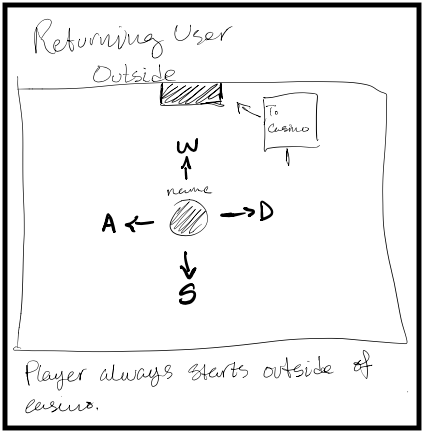 Returning User
Outside
To
Casino
W
name
A
D
S
Player always starts outside of
casino.